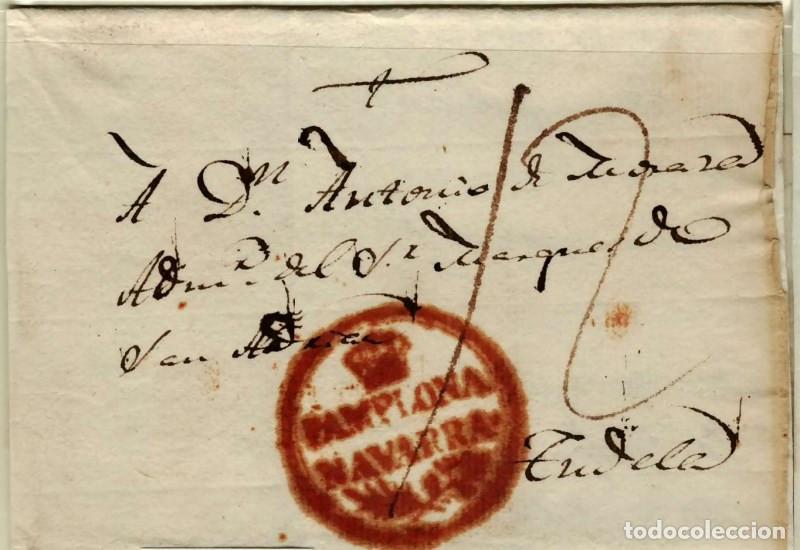 A D.n Antonio de
Adm.r del S.r Marques de
San Adrian
12
PAMPLONA
NAVARRA
Tudela
todocoleccion